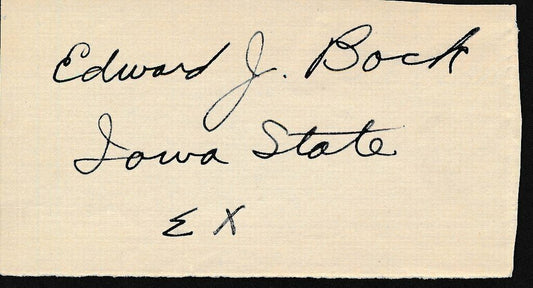 Edward J. Bock
Iowa State
Σ X